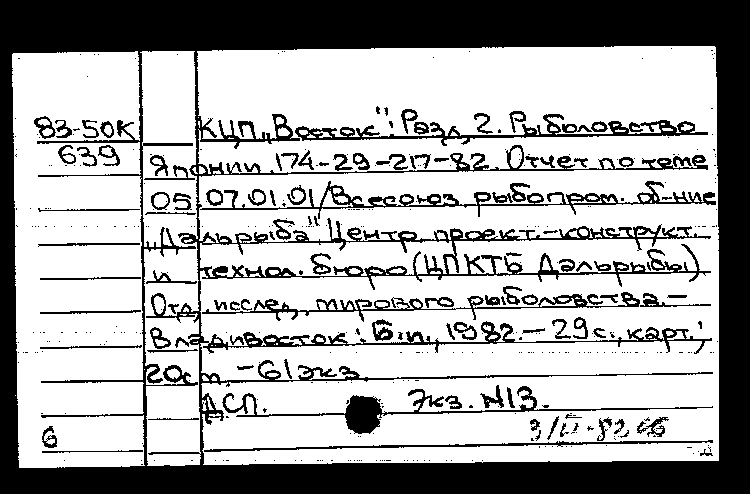 83-50К КЦП „Восток": Разд. 2. Рыболовство
639 Японии. 174-29-217-82. Отчет по теме
05.07.01.01/Всесоюз. рыбопром. об-ние
„Дальрыба". Центр. проект.-конструкт.
и технол. бюро (ЦПКТБ Дальрыбы)
Отд. исслед. мирового рыболовства.-
Владивосток: Б.и., 1982.- 29 с., карт.;
20см. - 61экз.
ДСП. Экз. N13.
6 3/II-82